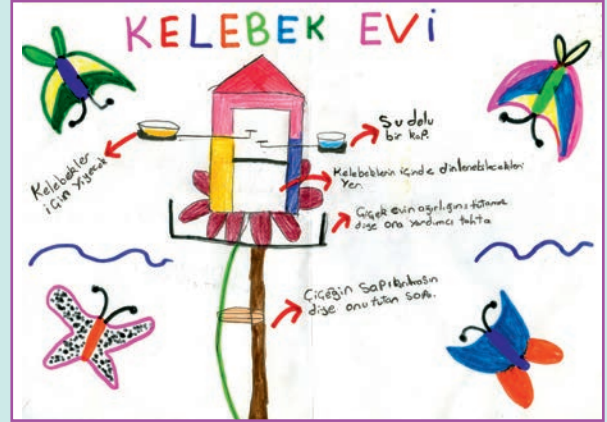 KELEBEK EVİ
Kelebekler
için yiyecek
Su dolu
bir kap.
Kelebeklerin içinde dinlenebilecekleri
Yer.
Çiçek evin ağırlığını tutamaz
diye ona yardımcı tahta
Çiçeğin sapı kırılmasın
diye onu tutan sopa.